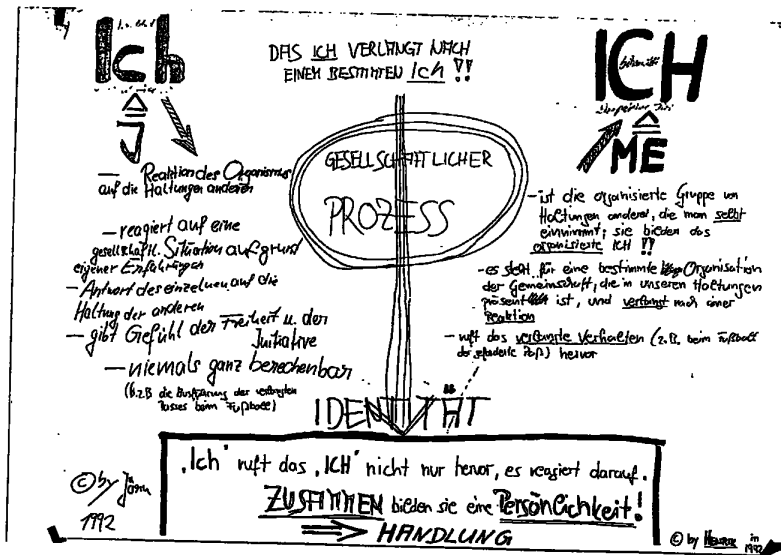 Ich
I
DAS ICH VERLANGT NACH
EINEM BESTIMMTEN Ich !!
ICH
ME
GESELLSCHAFTLICHER
PROZESS
— Reaktion des Organismus
auf die Haltungen anderer
— reagiert auf eine
gesellschaftl. Situation aufgrund
eigener Erfahrungen
— Antwort des einzelnen auf die
Haltung der anderen
— gibt Gefühl der Freiheit u. der
Initiative
— niemals ganz berechenbar
(z.B die Ausführung der verlangten
Passes beim Fußball)
- ist die organisierte Gruppe von
Haltungen anderer, die man selbst
einnimmt; sie bilden das
organisierte ICH !!
- es steht für eine bestimmte Organisation
der Gemeinschaft, die in unseren Haltungen
präsent ist, und verlangt nach einer
Reaktion
- ruft das verlangte Verhalten (z.B. beim Fußball
der geforderte Paß) hervor
IDENTITÄT
„Ich" ruft das „ICH" nicht nur hervor, es reagiert darauf.
ZUSAMMEN bilden sie eine Persönlichkeit!
⇒ HANDLUNG
© by Jörn
1992
© by Hendrik in
1992